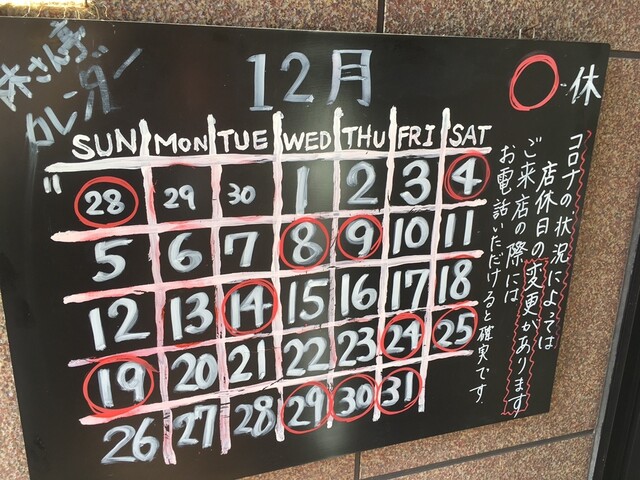 休さん亭
カレンダー
12月
○…休
SUN MON TUE WED THU FRI SAT
28 29 30 1 2 3 4
5 6 7 8 9 10 11
12 13 14 15 16 17 18
19 20 21 22 23 24 25
26 27 28 29 30 31
コロナの状況によっては
店休日の変更があります
ご来店の際には
お電話いただけると確実です.